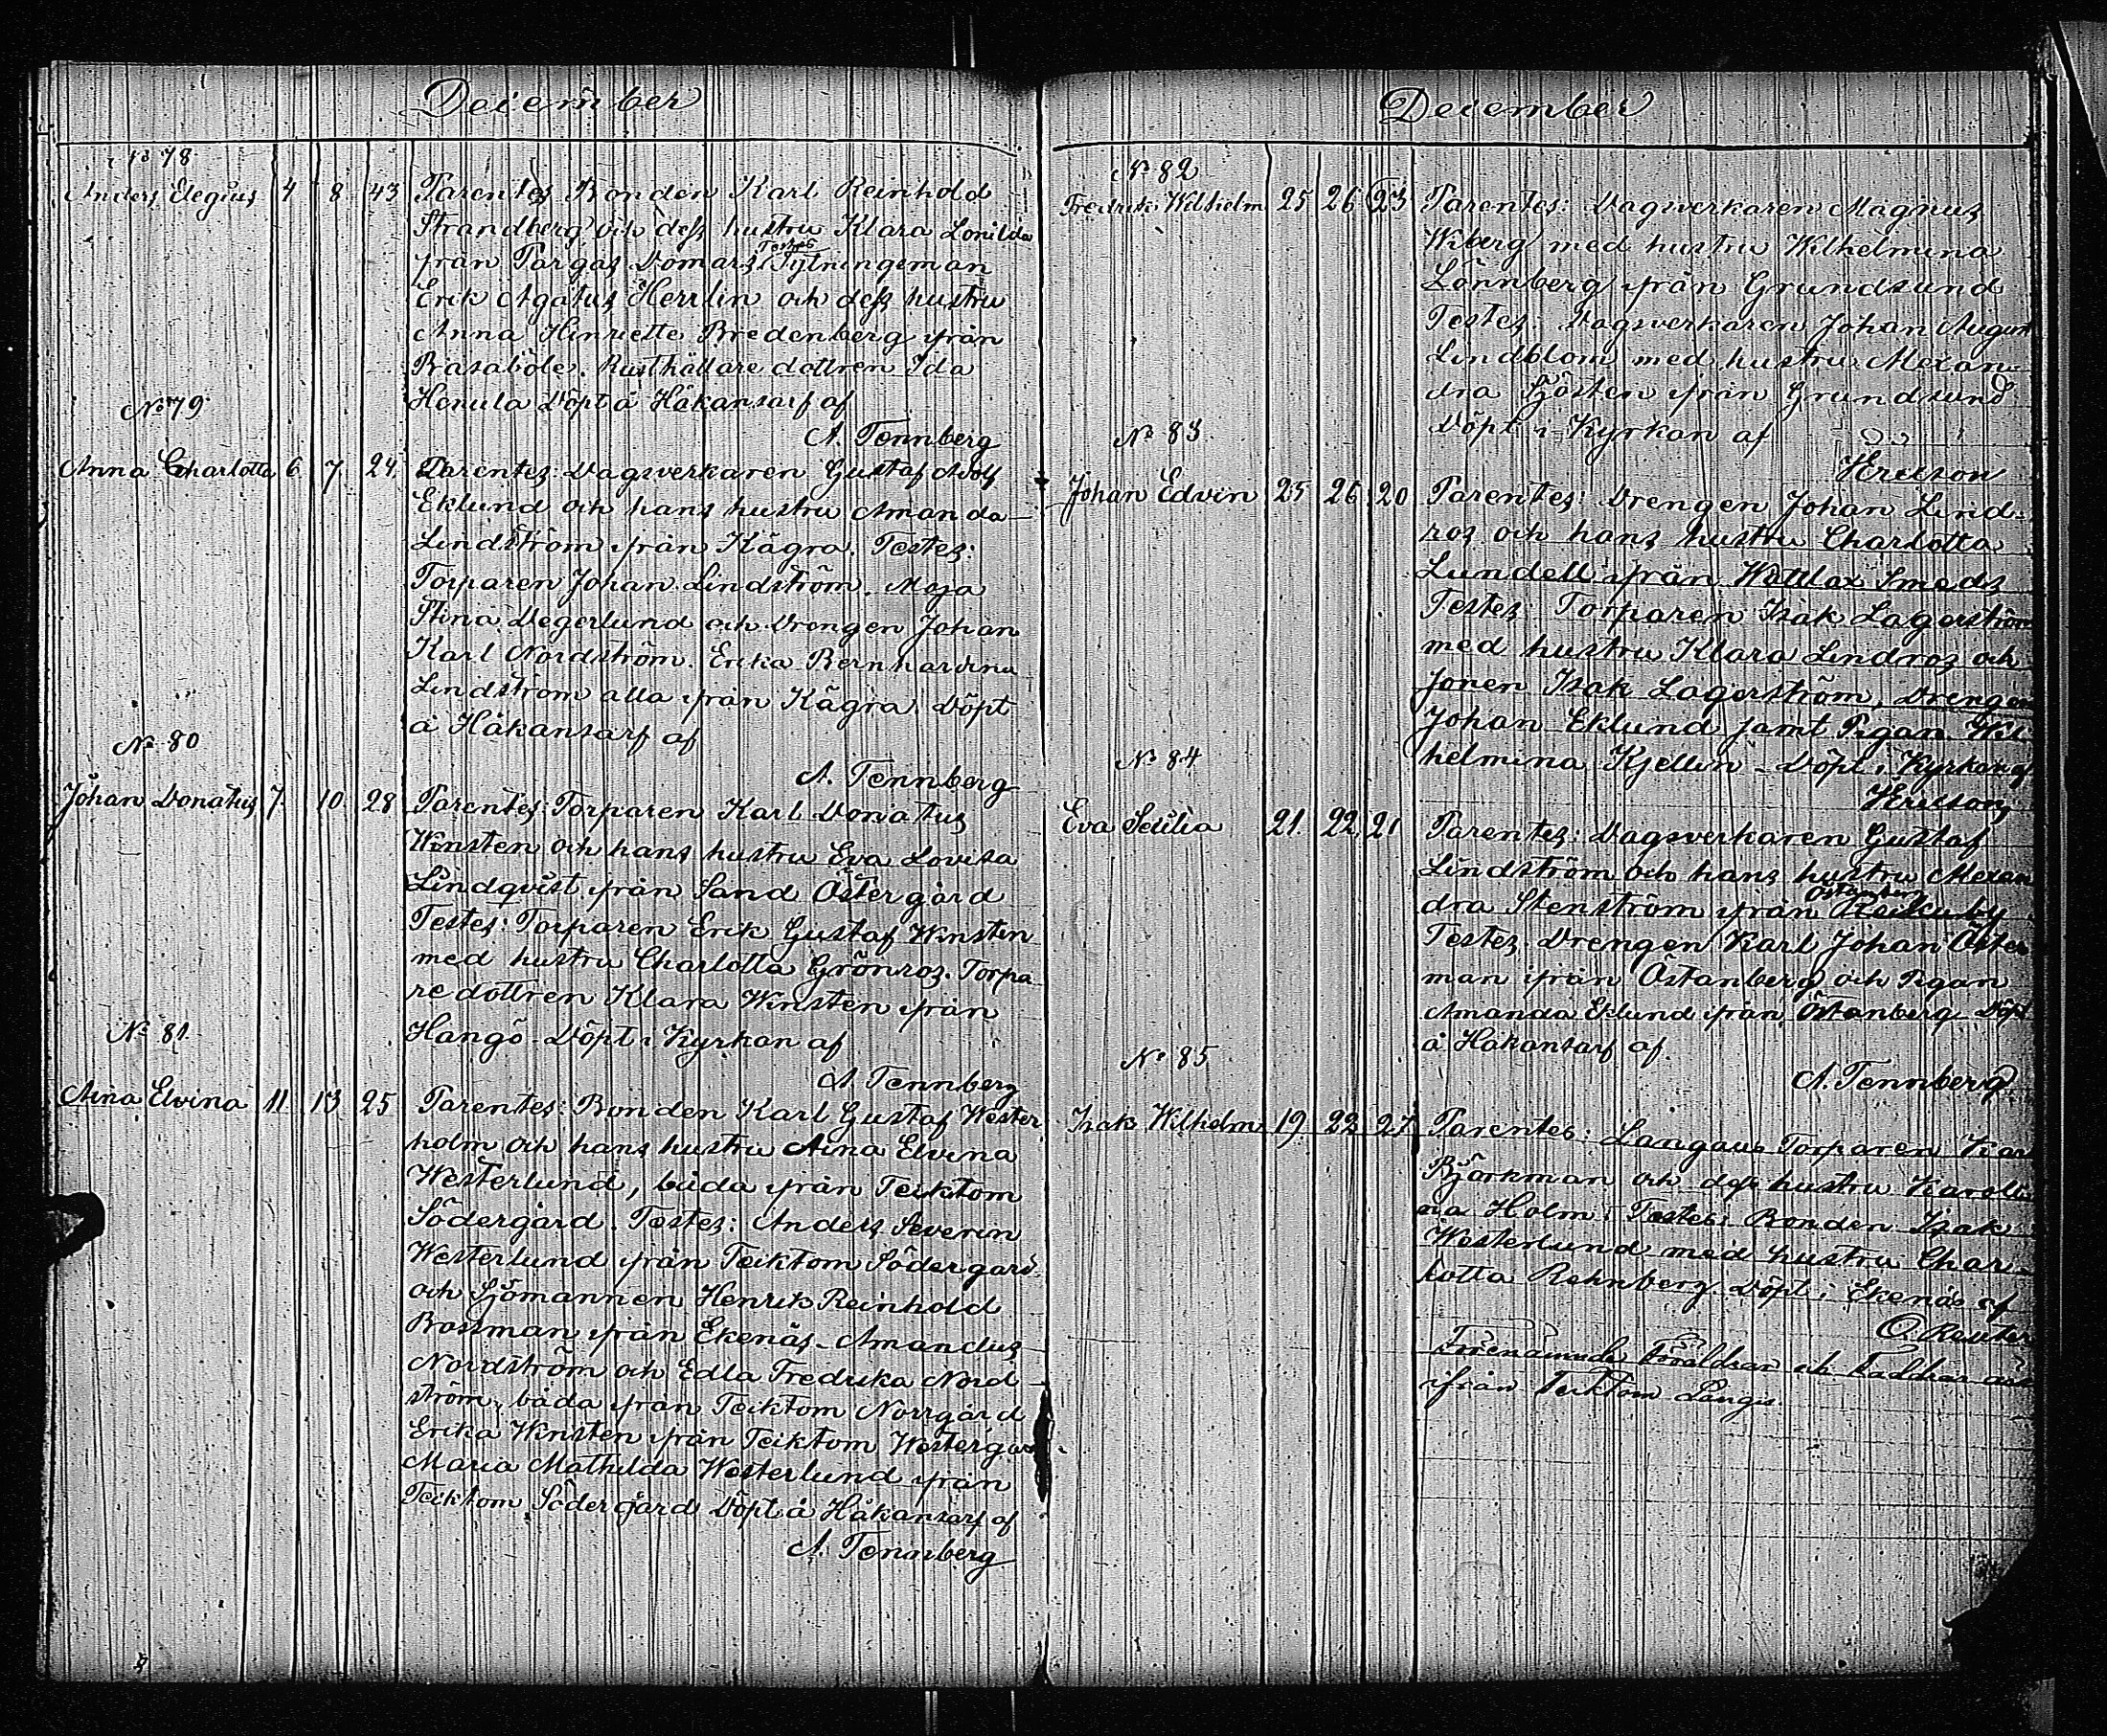 December
No 78
Anders Elegius 4 8 43 Parentes Bonden Karl Reinhold
Strandberg och dess hustru Klara Lovilda
från Pargas Domars Testes Fÿtningeman
Erik Agatus Herrlin och dess hustru
Anna Henriette Bredenberg från
Brasaböle. Rusthållare dottren Ida
Henula Döpt å Håkansarf af
A. Tennberg
No 79
Anna Charlotta 6 7 24 Parentes: Dagsverkaren Gustaf Adolf
Eklund och hans hustru Amanda
Lindström från Kägra. Testes:
Torparen Johan Lindström. Maja
Stina Degerlund och Drengen Johan
Karl Nordström. Erika Bernhardina
Lindström alla från Kägra Döpt
å Håkansarf af
A. Tennberg
No 80
Johan Donatus 7 10 28 Parentes: Torparen Karl Donatus
Winsten och hans hustru Eva Lovisa
Lindqvist från Sand Östergård
Testes: Torparen Erik Gustaf Winsten
med hustru Charlotta Grönros. Torpa
re dottren Klara Winsten från
Hangö Döpt i Kyrkan af
A Tennberg
No 81
Aina Elvina 11 13 25 Parentes: Bonden Karl Gustaf Wester
holm och hans hustru Aina Elvina
Westerlund, båda från Teiktom
Södergård. Testes: Anders Severin
Westerlund från Teiktom Södergård
och Sjömannen Henrik Reinhold
Bossman från Ekenäs. Amandus
Nordström och Edla Fredrika Nord
ström, båda från Teiktom Norrgård
Erika Winsten från Teiktom Westergård
Maria Mathilda Westerlund från
Teiktom Södergård Döpt å Håkansarf af
A. Tennberg
December
No 82
Fredrik Wilhelm 25 26 23 Parentes: Dagsverkaren Magnus
Wiberg med hustru Wilhelmina
Lönnberg från Grundsund
Testes: Dagsverkaren Johan August
Lindblom med hustru Alexan
dra Sjösten från Grundsund
Döpt i Kyrkan af
Ericson
No 83
Johan Edvin 25 26 20 Parentes: Drengen Johan Lind
ros och hans hustru Charlotta
Lundell från Wättlax Smeds
Testes: Torparen Isak Lagerström
med hustru Klara Lindros och
Sonen Isak Lagerström, Drengen
Johan Eklund samt Pigan Wil
helmina Kjellin - Döpt i Kyrkan af
Ericson
No 84
Eva Secilia 21 22 21 Parentes: Dagsverkaren Gustaf
Lindström och hans hustru Alexan
dra Stenström från Östanberg
Testes Drengen Karl Johan Öster
man från Östanberg och Pigan
Amanda Eklund från Östanberg Döpt
å Håkansarf af
A. Tennberg
No 85
Isak Wilhelm 19 22 27 Parentes: Langans Torparen Kar
Björkman och dess hustru Karoli
na Holm. Testes: Bonden Isak
Westerlund med hustru Char
lotta Rehnberg. Döpt i Ekenäs af
O. Reuter
Förenämnde Föräldrar och Faddrar äro
ifrån Teiktom Långis.